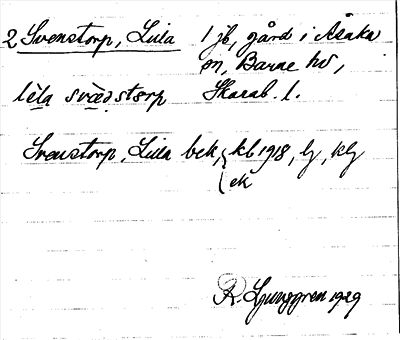 2 Svenstorp, Lilla 1 jb, gård i Åsaka
sn, Barne hd,
Skarab. l.
lìla svæ̀nstɔrp
Svenstorp, Lilla bek, kb 1918, lj, klj
ek
R. Ljunggren 1929